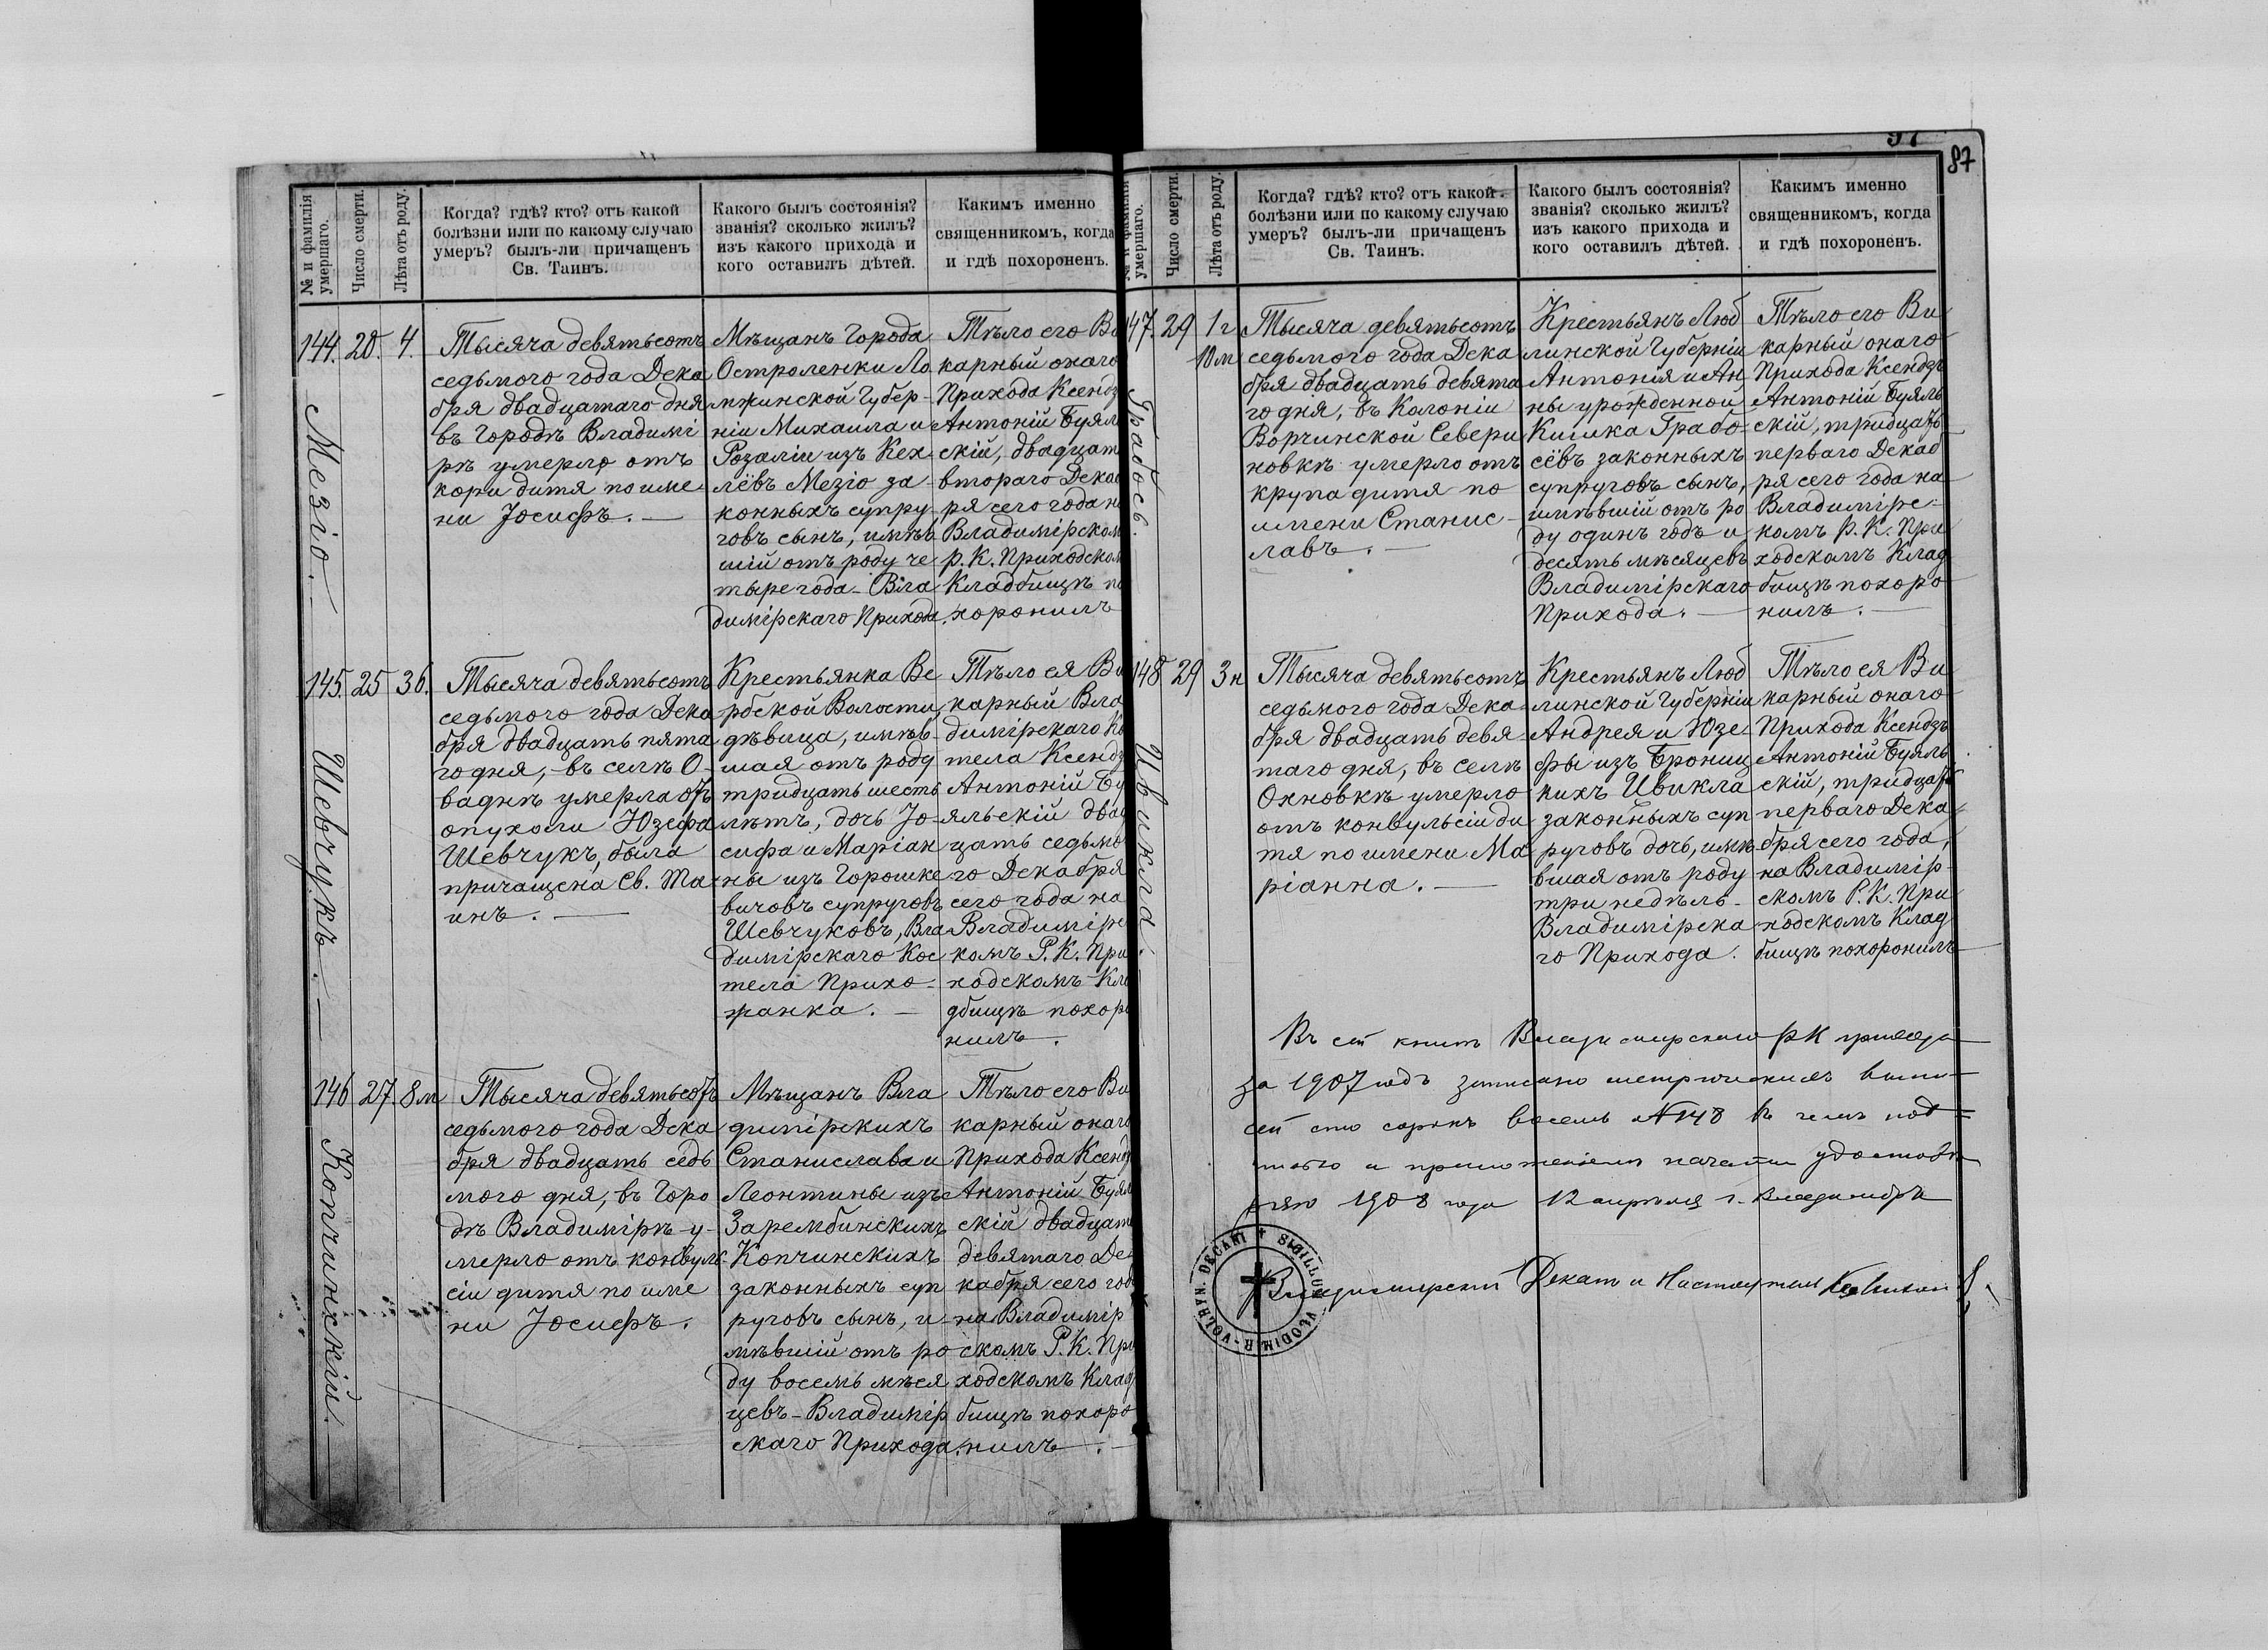 87
№ и фамилія
умершаго.
Число смерти.
Лѣта отъ роду.
Когда? гдѣ? кто? отъ какой
болѣзни или по какому случаю
умеръ? былъ-ли причащенъ
Св. Таинъ.
Какого былъ состоянія?
званія? сколько жилъ?
изъ какого прихода и
кого оставилъ дѣтей.
Какимъ именно
священникомъ, когда
и гдѣ похороненъ.
144. 20. 4.
Мезіо.
Тысяча девятьсотъ
седьмого года Дека
бря двадцатаго дня
въ городѣ Владимі
рѣ умерло отъ
кори дитя по име-
ни Іосифъ. —
Мѣщанъ Города
Остроленки Ло
мжинской Губер-
ніи Михаила и
Розаліи изъ Кех-
лёвъ Мезіо за-
конныхъ супру-
говъ сынъ, имѣв
шій отъ роду че
тыре года - Вла
димірскаго Прихода.
Тѣло его Ви
карный онаго
Прихода Ксендз
Антоній Буял
скій, двадцат
втораго Декаб
ря сего года н
Владимірском
Р. К. Приходском
Кладбищѣ по
хоронилъ
145. 25 36.
Шевчукъ. —
Тысяча девятьсотъ
седьмого года Дека
бря двадцать пята
го дня, въ селѣ О-
ваднѣ умерла отъ
опухоли Юзефа
Шевчукъ, была
причащена Св. Та-
инъ. —
Крестьянка Ве
рбской Волости,
дѣвица, имѣв-
шая отъ роду
тридцать шесть
лѣтъ, дочь Іо-
сифа и Маріан
ны изъ Горошке
вичовъ супруговъ
Шевчуковъ, Вла
димірскаго Кос
тела Прихо-
жанка. —
Тѣло ея Ви
карный Вла
димірскаго Ко
тела Ксендз
Антоній Бу
яльскій два
цать седьмо
го Декабря
сего года на
Владимірс
комъ Р. К. При
ходскомъ Кла
дбищѣ похоро
нилъ.
146 27. 8м
Копчинскій.
Тысяча девятьсотъ
седьмого года Дека
бря двадцать седь
мого дня, въ Горо
дѣ Владимірѣ у-
мерло отъ конвуль-
сіи дитя по име
ни Іосифъ.
Мѣщанъ Вла
димірскихъ
Станислава и
Леонтины изъ
Зарембинскихъ
Копчинскихъ
законныхъ суп
руговъ сынъ, и-
мѣвшій отъ ро
ду восемь мѣся
цевъ - Владимір
скаго Прихода.
Тѣло его Ви
карный онаго
Прихода Ксенд
Антоній Буял
скій двадцат
девятаго Де-
кабря сего год
на Владимір
скомъ Р. К. При
ходскомъ Клад
бищѣ похоро
нилъ. —
№ и фамилія
умершаго.
Число смерти.
Лѣта отъ роду.
Когда? гдѣ? кто? отъ какой
болѣзни или по какому случаю
умеръ? былъ-ли причащенъ
Св. Таинъ.
Какого былъ состоянія?
званія? сколько жилъ?
изъ какого прихода и
кого оставилъ дѣтей.
Какимъ именно
священникомъ, когда
и гдѣ похороненъ.
147. 29 1г
10м
Грабось.
Тысяча девятьсотъ
седьмого года Дека
бря двадцать девята
го дня, въ Колоніи
Ворчинской Севери
новкѣ умерло отъ
крупа дитя по
имени Станис-
лавъ. —
Крестьянъ Люб
линской Губерніи
Антонія и Ан
ны урожденной
Кишка Грабо
сёвъ законныхъ
супруговъ сынъ,
имѣвшій отъ ро
ду одинъ годъ и
десять мѣсяцевъ
Владимірскаго
Прихода. —
Тѣло его Ви
карный онаго
Прихода Ксендзъ
Антоній Буяль
скій, тридцать
перваго Декаб
ря сего года на
Владимірс-
комъ Р. К. При
ходскомъ Клад
бищѣ похоро
нилъ. —
148 29 3н
Цвикла.
Тысяча девятьсотъ
седьмого года Дека-
бря двадцать девя-
таго дня, въ селѣ
Охновкѣ умерло
отъ конвульсіи ди
тя по имени Ма
ріанна. —
Крестьянъ Люб
линской Губерніи
Андрея и Юзе-
фы изъ Брониц
кихъ Цвикла
законныхъ суп
руговъ дочь, имѣ-
вшая отъ роду
три недѣль-
Владимірска
го Прихода.
Тѣло ея Ви
карный онаго
Прихода Ксендзъ
Антоній Буяль
скій, тридцать
перваго Дека
бря сего года,
на Владимір-
скомъ Р. К. При
ходскомъ Клад
бищѣ похоронилъ
Въ сей книгѣ Владимирского РК прихода
за 1907 годъ записано метрическихъ
сей сто сорокъ восемь №148 въ чемъ под
и приложеніемъ печати удостовѣ
ряю 1908 года 12 апрѣля г. Владимиръ
Владимирскій Деканъ и Настоятель
SIGILLUM WŁODIMIR-VOLHYN. DECANI